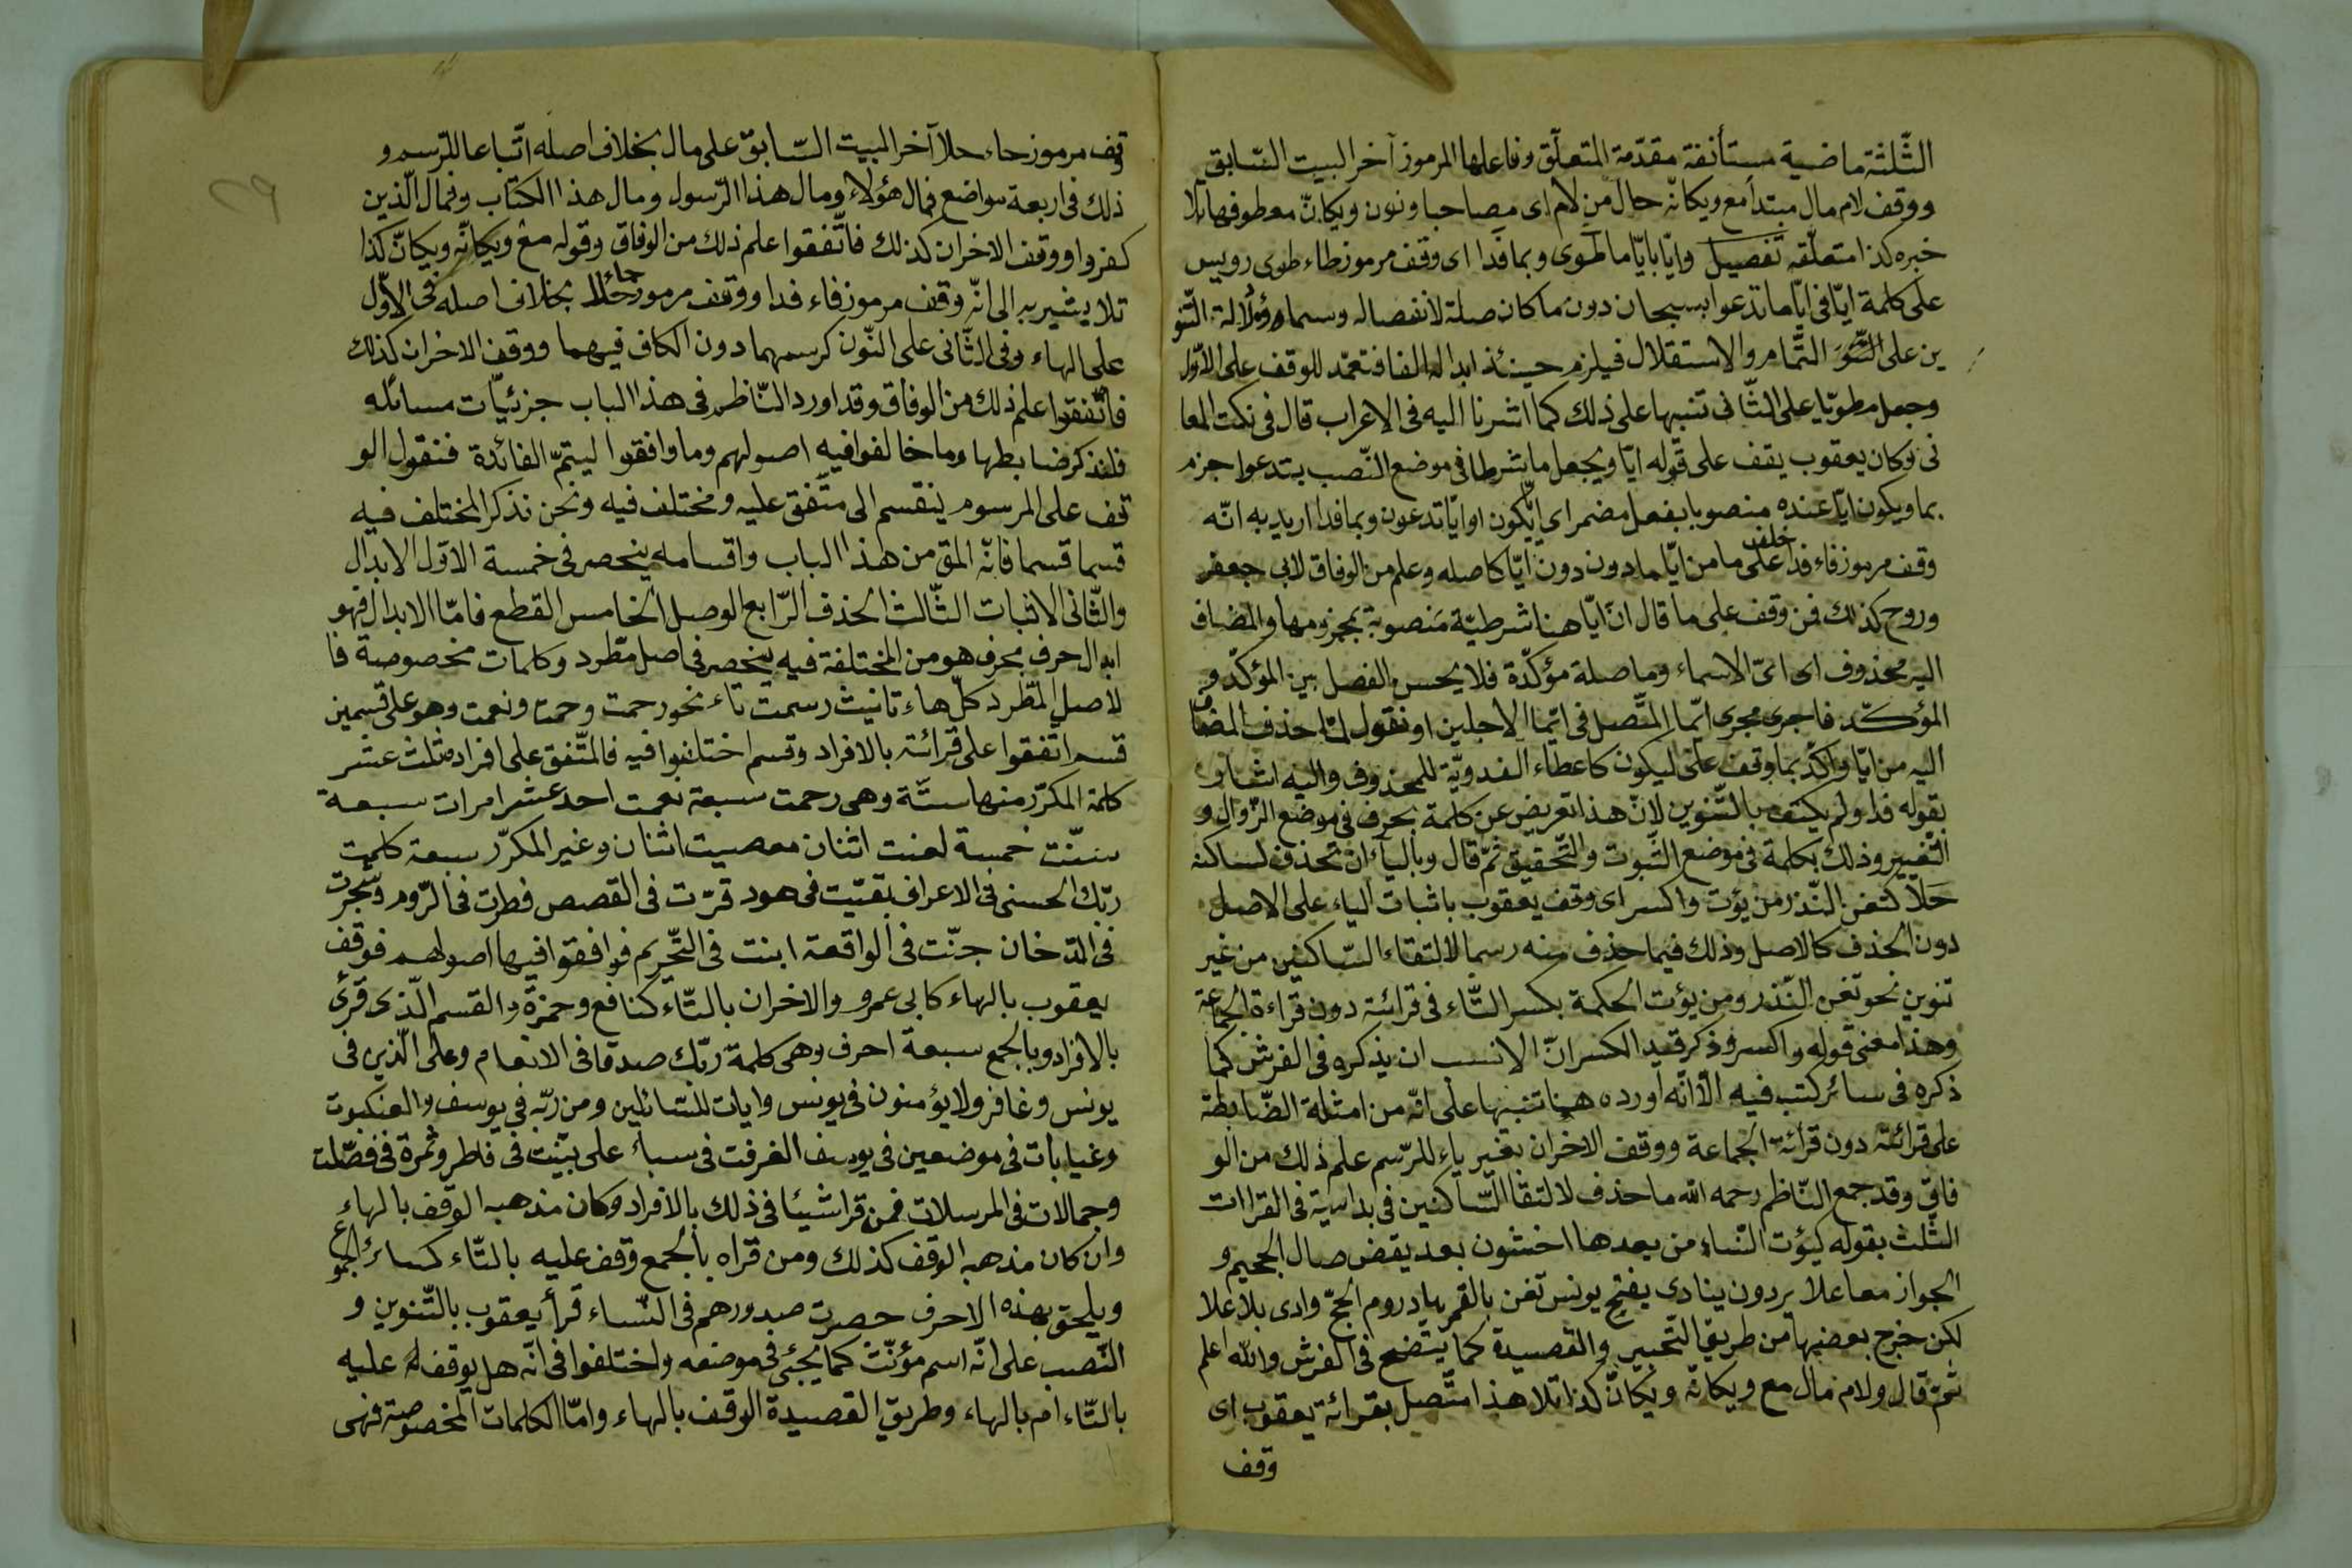 الثّلثة ماضية مستأنفة مقدّمة المتعلّق وفاعلها المرموز آخر البيت السّابق
ووقف لام مال مبتدأ مع ويكانّه حال من لام اى مصاحبا ونون ويكانّ معطوفها تلا
خبره كذا متعلّقه تفصيل وايّا بايّا ما طوى وبما فدا اى وقف مرموز طاء طوى رويس
على كلمة ايّا فى ايّا ما تدعوا بسبحان دون ما كان صلة لانفصاله وسما ودلالة التّنو
ين على التّمام والاستقلال فيلزم حينئذ ابداله الفا فتعمّد للوقف على الاوّل
وجعل مطويّا على الثّانى تنبيها على ذلك كما اشرنا اليه فى الاعراب قال فى نكت المعا
نى وكان يعقوب يقف على قوله ايّا ويجعل ما شرطا فى موضع النّصب بتدعوا جزم
بما ويكون ايّا عنده منصوبا بفعل مضمر اى ايّا يكون او ايّا تدعون وبما فدا اريد به انّه
وقف مرموز فاء فدا خلف على ما من ايّا ما دون دون ايّا كاصله وعلم من الوفاق لابى جعفر
وروح كذلك فمن وقف على ما قال انّ ايّا هنا شرطيّة منصوبة بمجزومها والمضاف
اليه محذوف اى اىّ الاسماء وما صلة مؤكّدة فلا يحسن الفصل بين المؤكّد و
المؤكّد فاجرى مجرى ايّما المتّصل فى ايّما الاجلين او نقول لمّا حذف المضاف
اليه من ايّا واكّد بما وقف على ليكون كاعطاء الفدويّة للمحذوف واليه اشار
بقوله فدا ولم يكتف بالتّنوين لانّ هذا تعريض عن كلمة بحرف فى موضع الزّوال و
التّغيير وذلك بكلمة فى موضع الثّبوت والتّحقيق ثمّ قال وبالياء ان تحذف لساكنه
حلا كتغن النّذر من يؤت واكسر اى وقف يعقوب باثبات الياء على الاصل
دون الحذف كالاصل وذلك فيما حذف منه رسما لالتقاء السّاكنين من غير
تنوين نحو تغن النّذر ومن يؤت الحكمة بكسر التّاء فى قرائته دون قراءة الجماعة
وهذا معنى قوله واكسر وذكر قيد الكسر انّ الانسب ان يذكره فى الفرش كما
ذكره فى سائر كتبه فيه الّا انّه اورده هنا تنبيها على انّه من امثلة الضّابطة
على قرائته دون قرائة الجماعة ووقف الاخران بغير ياء للرّسم علم ذلك من الو
فاق وقد جمع النّاظم رحمه الله ما حذف لالتقا السّاكنين فى بداسية فى القراات
الثّلث بقوله كيؤت النّساء من بعدها اخشون بعد يقض صال الجحيم و
الجواز معا علا يردون ينادى بفتح يونس تغن بالقمر بهاد روم الحجّ وادى بلا علا
لكن خرج بعضها من طريق التّحبير والقصيدة كما يتّضح فى الفرش والله اعلم
ثمّ قال ولام مال مع ويكانّه ويكانّ كذا تلا هذا متّصل بقرائة يعقوب اى
وقف
قف مرموز حاء حلا آخر البيت السّابق على مال بخلاف اصله اتّباعا للرّسم و
ذلك فى اربعة مواضع فمال هؤلاء ومال هذا الرّسول ومال هذا الكتاب وفمال الّذين
كفروا ووقف الاخران كذلك فاتّفقوا علم ذلك من الوفاق وقوله مع ويكانّه ويكانّ كذا
تلا يشير به الى انّه وقف مرموز فاء فدا ووقف مرموز حاء حلا بخلاف اصله فى الاوّل
على الهاء وفى الثّانى على النّون كرسمهما دون الكاف فيهما ووقف الاخران كذلك
فاتّفقوا علم ذلك من الوفاق وقد اورد النّاظم فى هذا الباب جزئيّات مسائله
فلنذكر ضابطها وما خالفوا فيه اصولهم وما وافقوا ليتمّ الفائدة فنقول الو
قف على المرسوم ينقسم الى متّفق عليه ومختلف فيه ونحن نذكر المختلف فيه
قسما قسما فانّه المق من هذا الباب واقسامه ينحصر فى خمسة الاوّل الابدال
والثّانى الاثبات الثّالث الحذف الرّابع الوصل الخامس القطع فامّا الابدال فهو
ابدال حرف بحرف هو من المختلفة فيه ينحصر فى اصل مطّرد وكلمات مخصوصة فا
لاصل المطّرد كلّ هاء تانيث رسمت تاء نحو رحمت وحمت ونعمت وهو على قسمين
قسم اتفقوا على قرائته بالافراد وقسم اختلفوا فيه فالمتّفق على افراده ثلث عشر
كلمة المكرّر منها ستّة وهى رحمت سبعة نعمت احد عشر امرات سبعة
سنّت خمسة لعنت اثنان معصيت اثنان وغير المكرّر سبعة كلمت
ربّك الحسنى فى الاعراف بقيّت فى هود قرّت فى القصص فطرت فى الرّوم وشجرت
فى الدّخان جنّت فى الواقعة ابنت فى التّحريم فوافقوا فيها اصولهم فوقف
يعقوب بالهاء كابى عمرو والاخران بالتّاء كنافع وحمزة والقسم الّذى قرئ
بالافراد وبالجمع سبعة احرف وهى كلمة ربّك صدقا فى الانعام وعلى الّذين فى
يونس وغافر ولا يؤمنون فى يونس وايات للسّائلين ومن ربّه فى يوسف والعنكبوت
وغيابات فى موضعين فى يوسف الغرفت فى سبأ على بيّنت فى فاطر وثمرة فى فصّلت
وجمالات فى المرسلات فمن قرا شيئا فى ذلك بالافراد وكان مذهبه الوقف بالهاء
وان كان مذهبه الوقف كذلك ومن قراه بالجمع وقف عليه بالتّاء كسائر الجموع
ويلحق بهذه الاحرف حصرت صدورهم فى النّساء قرأ يعقوب بالتّنوين و
النّصب على انّه اسم مؤنّث كما يجئ فى موضعه واختلفوا فى انّه هل يوقف له عليه
بالتّاء ام بالهاء وطريق القصيدة الوقف بالهاء وامّا الكلمات المخصوصة فهى